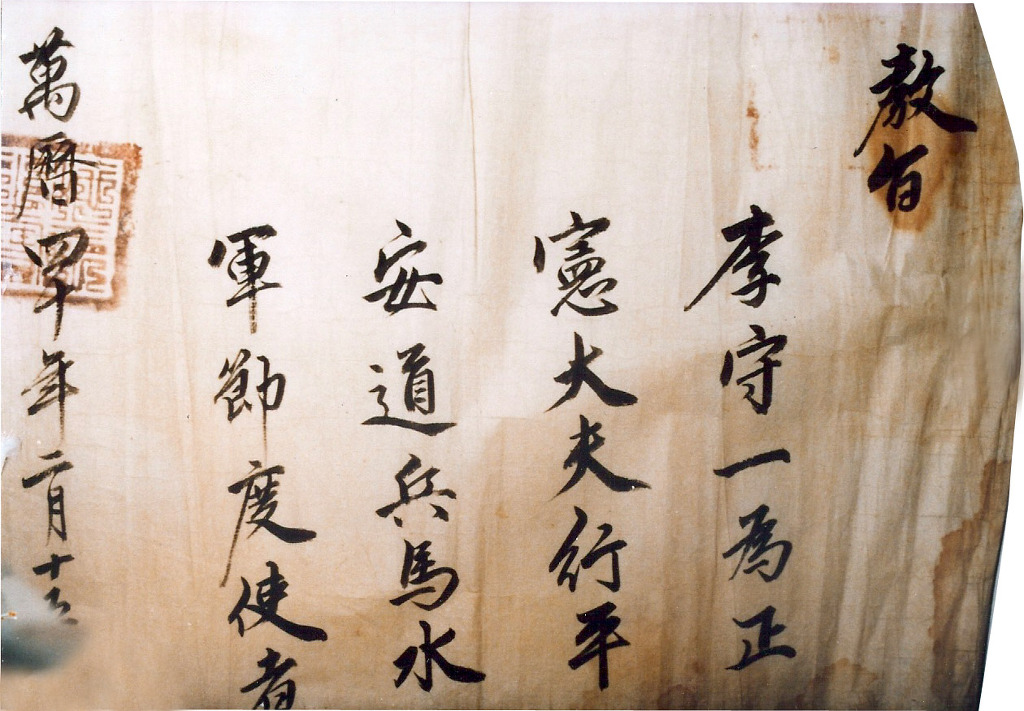 教旨
李守一為正
憲大夫行平
安道兵馬水
軍節度使者
萬曆四十年二月十五